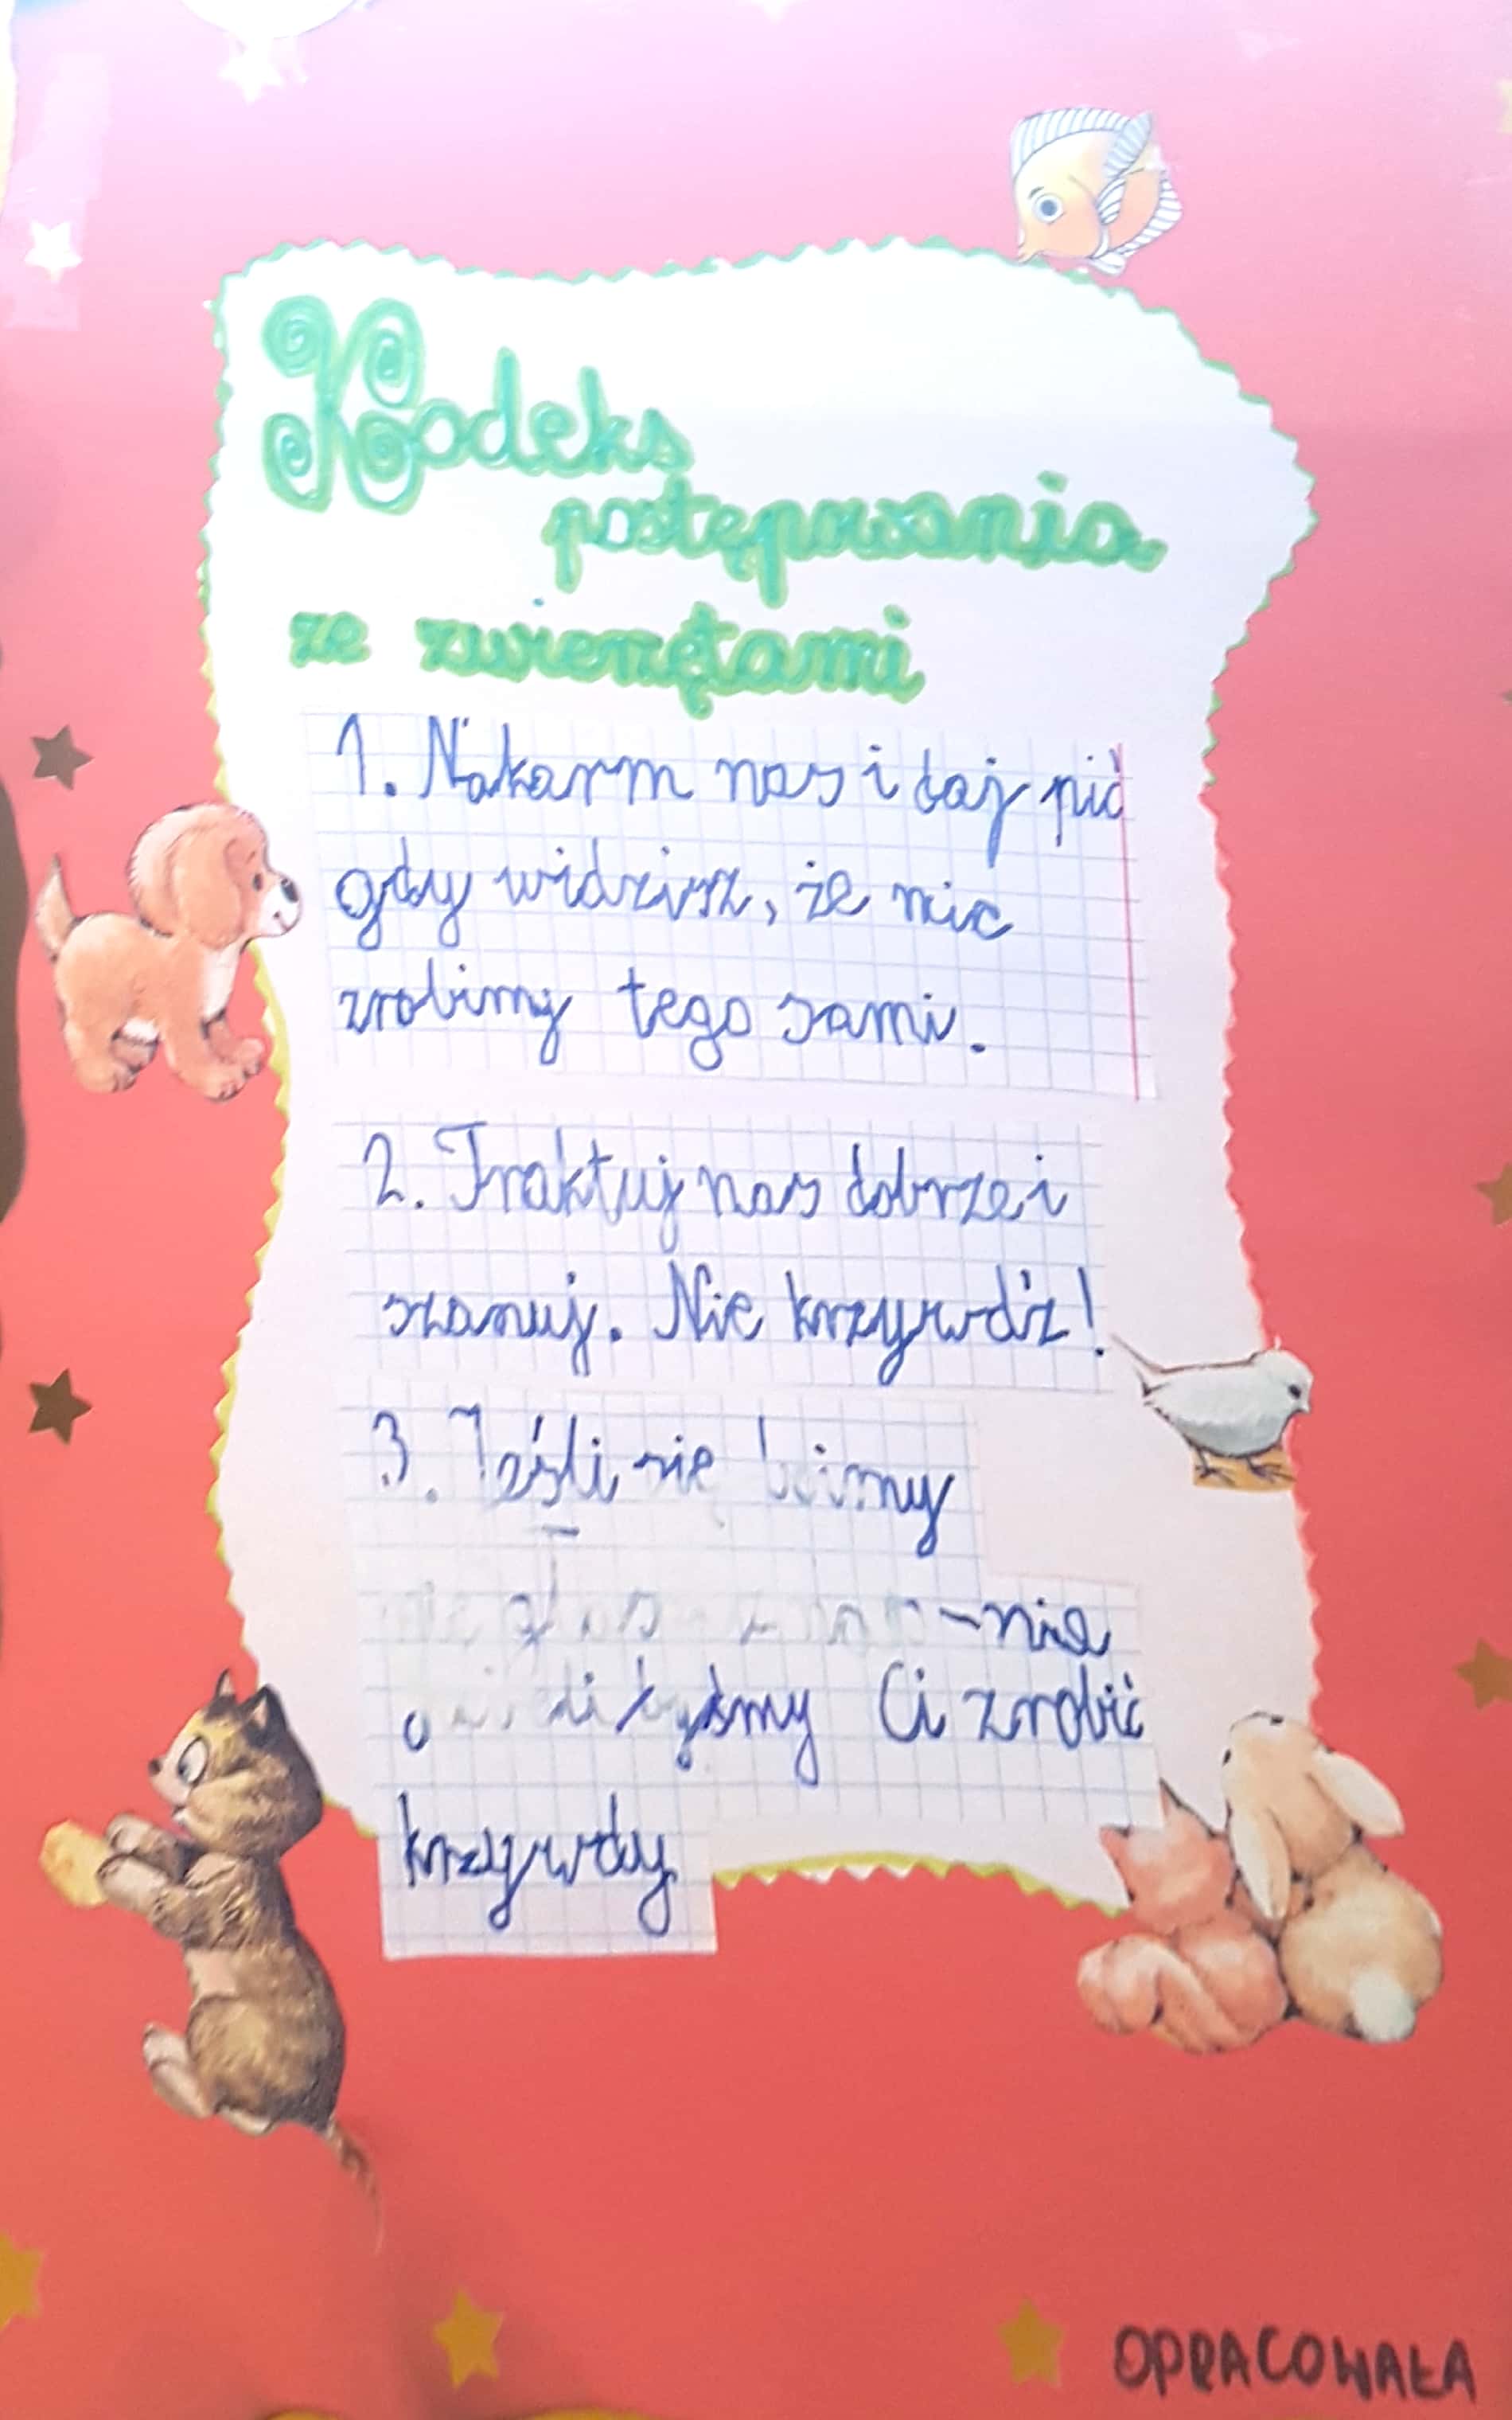 Kodeks
postępowania
ze zwierzętami
1. Nakarm nas i daj pić
gdy widzisz, że nie
zrobimy tego sami.
2. Traktuj nas dobrze i
szanuj. Nie krzywdź!
3. Jeśli się boimy
-nie
Ci zrobić
krzywdy
OPRACOWAŁA